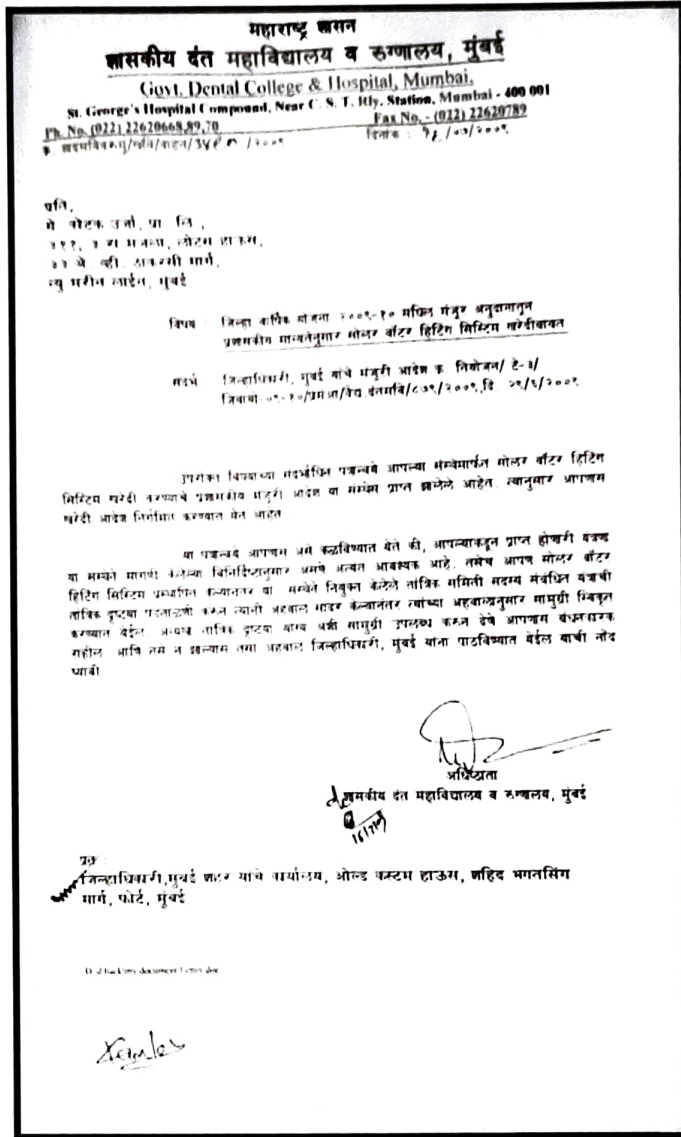 महाराष्ट्र शासन
शासकीय दंत महाविद्यालय व रुग्णालय, मुंबई
Govt. Dental College & Hospital, Mumbai.
St. George's Hospital Compound, Near C. S. T. Rly. Station, Mumbai - 400 001
Ph. No. (022) 22620668,89,70 Fax No. - (022) 22620789
दिनांक : /०७/२००९
प्रति,
मे उर्जा, प्रा लि ,
लोटस हाऊस,
न्यु मरीन लाईन, मुंबई
विषय जिल्हा वार्षिक योजना २००९-१० मधिल मंजूर अनुदानातून
प्रशासकीय मान्यतेनुसार सोलर वॉटर हिटिंग सिस्टिम खरेदीबाबत
संदर्भ जिल्हाधिकारी, मुंबई यांचे मंजुरी आदेश क्र नियोजन/
उपरोक्त विषयाच्या संदर्भाधिन पत्रान्वये आपल्या संस्थेमार्फत सोलर वॉटर हिटिंग
सिस्टिम खरेदी करण्याचे प्रशासकीय मंजुरी आदेश या संस्थेस प्राप्त झालेले आहेत. त्यानुसार आपणास
खरेदी आदेश निर्गमित करण्यात येत आहेत
या पत्रान्वये आपणास असे कळविण्यात येते की, आपल्याकडून प्राप्त होणारी यंत्रणा
या संस्थेने मागणी केलेल्या विनिर्दिष्टानुसार असणे अत्यंत आवश्यक आहे. तसेच आपण सोलर वॉटर
हिटिंग सिस्टिम प्रस्थापित केल्यानंतर या संस्थेने नियुक्त केलेले तांत्रिक समिती सदस्य संबंधित यंत्राची
तांत्रिक दृष्टया पडताळणी करून त्यांनी अहवाल सादर केल्यानंतर त्यांच्या अहवालानुसार सामुग्री स्विकृत
करण्यात येईल. अन्यथा तांत्रिक दृष्टया योग्य अशी सामुग्री उपलब्ध करून देणे आपणास बंधनकारक
राहील आणि तसे न झाल्यास तसा अहवाल जिल्हाधिकारी, मुंबई यांना पाठविण्यात येईल याची नोंद
घ्यावी
अधिष्ठाता
शासकीय दंत महाविद्यालय व रुग्णालय, मुंबई
प्रत
जिल्हाधिकारी,मुंबई शहर यांचे कार्यालय, ओल्ड कस्टम हाऊस, शहिद भगतसिंग
मार्ग, फोर्ट, मुंबई